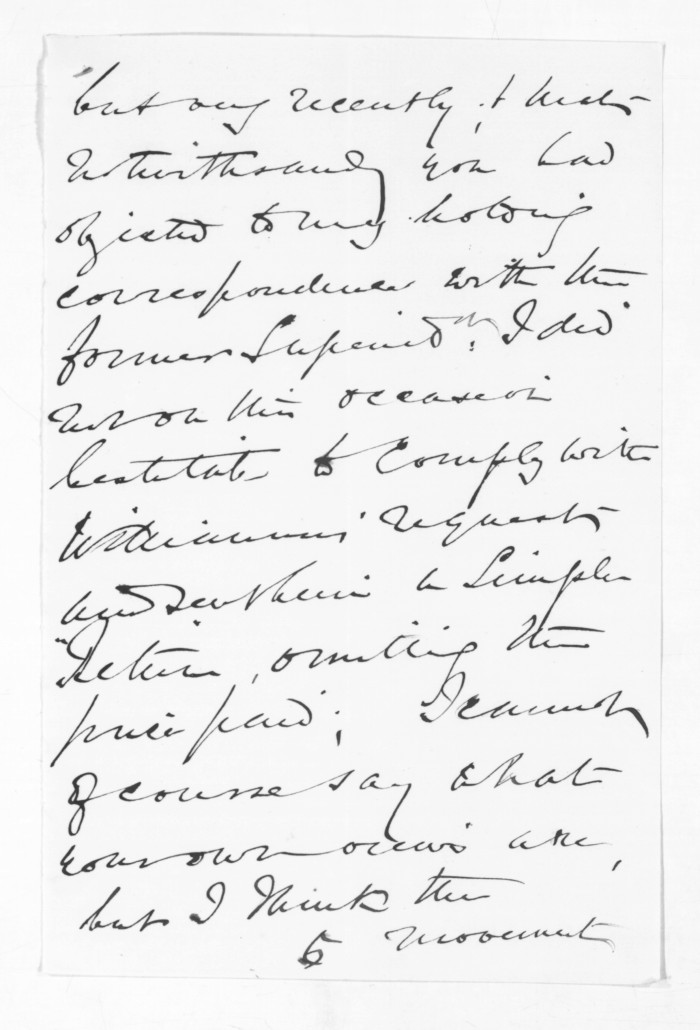 but very recently, & that
notwithstandg you had
objected to my holding
correspondence with the
former Superintdt. I did
not on this occasion
hesitate to comply with
Williamson's request
and sent him a Simple
"Return", omitting the
price paid; I cannot
of course say what
your own views are,
but I think the
5 movement